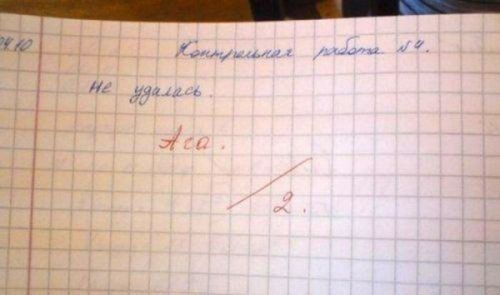 04.10 Контрольная работа №4.
Не удалась.
Ага.
2.